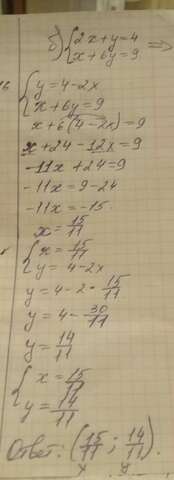 б) {2x+y=4
x+6y=9 =>
{y=4-2x
x+6y=9
x+6(4-2x)=9
x+24-12x=9
-11x+24=9
-11x=9-24
-11x=-15
x=15/11
{x=15/11
y=4-2x
y=4-2·15/11
y=4-30/11
y=14/11
{x=15/11
y=14/11
Ответ: (15/11; 14/11).
x y